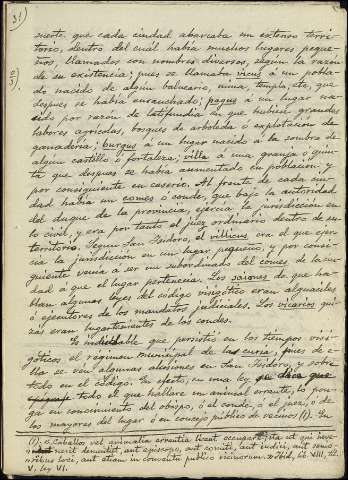 31)
mente que cada ciudad abarcaba un extenso terri-
torio, dentro del cuál había muchos lugares peque-
ños, llamados con nombres diversos, según la razón
de su existencia; pues se llamaba vicus á un pobla-
do nacido de algun balneario, mina, templo, etc, que
despues se había ensanchado; pagus á un lugar na-
cido por razon de latifundia en que hubiera grandes
labores agrícolas, bosques de arboleda ó explotacion de
ganaderia; burgus á un lugar nacido á la sombra de
algún castillo ó fortaleza; villa á una granja ó quin-
ta que despues se había aumentado en poblacion, y
por consiguiente en caserio. Al frente de cada ciu-
dad habia un comes ó conde, que bajo la autoridad
del duque de la provincia, ejercia la jurisdiccion en
lo civil, y era por tanto el juez ordinario dentro de su
territorio. Segun San Isidoro, el villicus era el que ejer-
cia la jurisdiccion en un lugar pequeño, y por consi-
guiente venia a ser un subordinado del comes de la ciu-
dad á que el lugar pertenecia. Los saiones de que ha-
blan algunas leyes del código visigótico eran alguaciles
ó ejecutores de los mandatos judiciales. Los vicarios qui-
zás eran lugartenientes de los condes.
Es indudable que persistió en los tiempos visi-
góticos el régimen municipal de la curia; pues de e-
lla se ven algunas alusiones en San Isidoro, y sobre
todo en el código. En efecto, en una ley se dice que
todo el que hallare un animal errante, lo pon-
ga en conocimiento del obispo, ó el conde, ó el juez, ó de
los mayores del lugar ó en concejo público de vecinos (1). En
(1). «Caballos vel animalia errantia liceat occupare, ita ut qui inve-
nerit denuntiet, aut episcopo, aut comiti, aut iudici, aut senio-
ribus loci, aut etiam in conventu publico vicinorum.» Ibid, lib. VIII, tit.
V, ley VI.